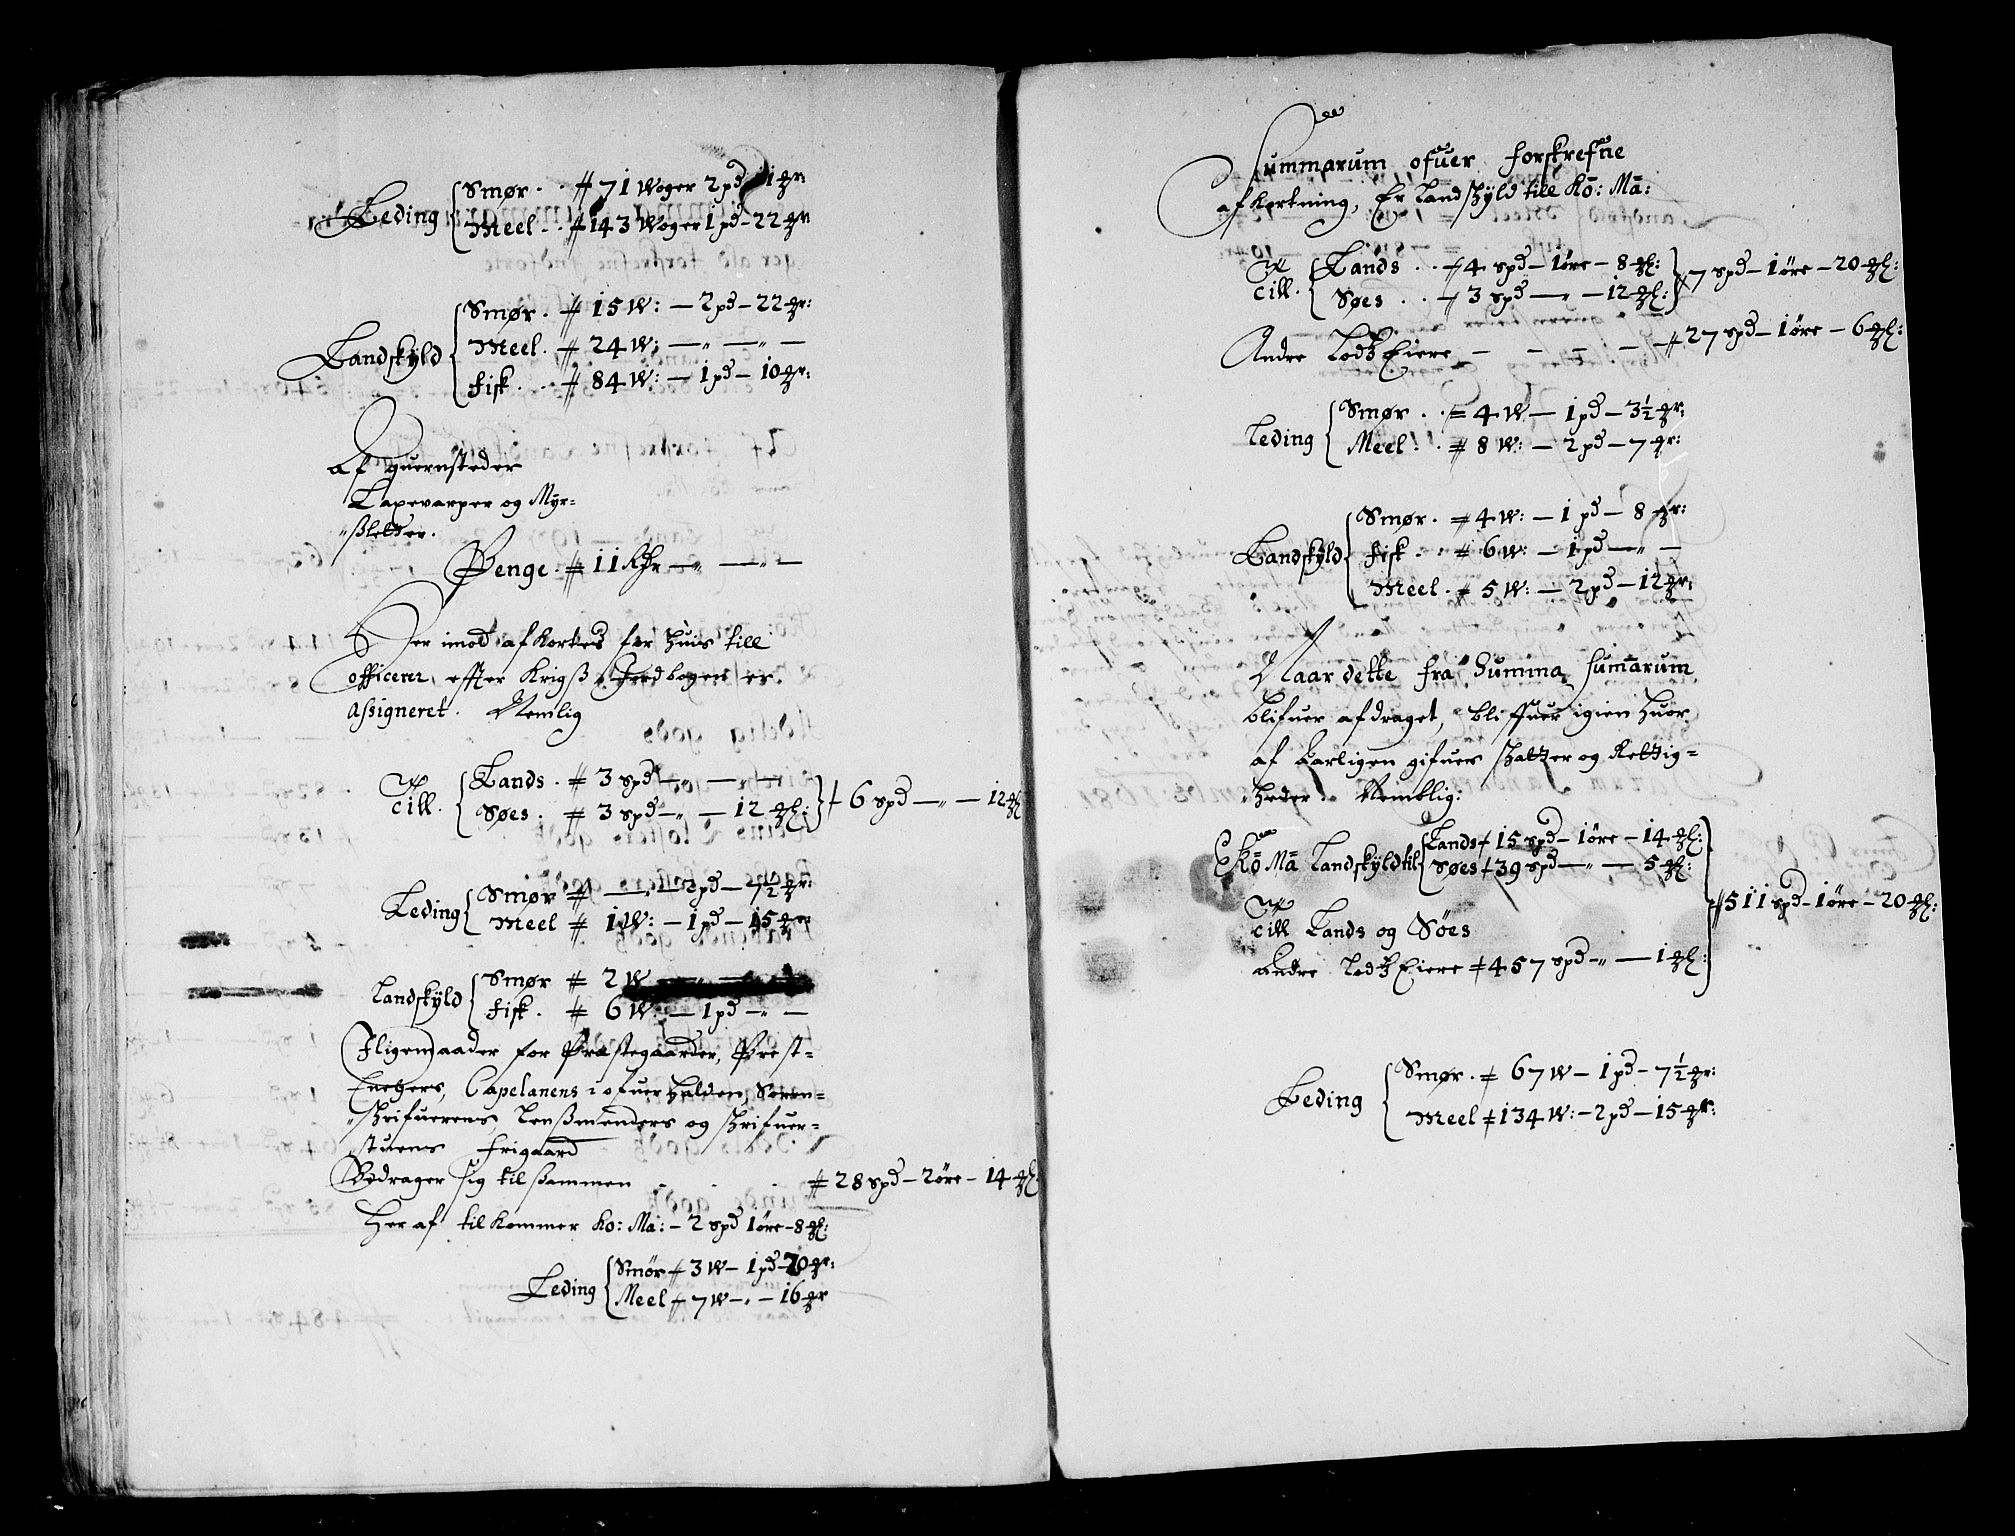 Leding { Smør . . # 71 Woger 2 pd 11 gr:
Meel . . # 143 Woger 1 pd - 22 gr
Landskÿld { Smør . # 15 W: - 2 pd - 22 gr:
Meel . # 24 W: - " - " -
fisk . . # 84 W: - 1 pd - 10 gr:
af quernsteder
Laxevarper og Myr=
"Sletter.
Penge . # 11 Rdr - " - " -
Der imod afkortes for huis till
officerer, effter Krigs Jordbogen er
Assigneret. Nemlig
till. { Lands . # 3 spd - " - " -
Søes . # 3 spd - " - 12 ml: } # 6 spd - " - 12 ml
Leding { Smør # - " - 2 pd - 7½ gr:
Meel # 1 W: - 1 pd - 15 gr
Landskÿld { Smør # 2 W
fisk . # 6 W: - 1 pd - " -
Iligemaader for Præstegaarder, Prest=
Enchers, Capelanens i ofuerhalden, Soren=
"skrifuerens, Lensmenders og skrifuer=
stuens frigaard
Bedrager sig til sammen . . # 28 spd - 2 öre - 14 ml:
Her af tilkommer Ko: Ma: - 2 spd 1 öre - 8 ml:
Leding { Smör # 3 W - 1 pd - 20 gr:
Meel # 7 W - " - 16 gr
Summarum ofuer forskrefne
afkortning, Er Landskÿld till Ko: Ma:
till. { Lands . . # 4 spd - 1 öre - 8 ml:
Søes . . # 3 spd - " - 12 ml: } # 7 spd - 1 öre - 20 ml:
Andre Lodz Eiere - - - - - # 27 spd - 1 öre - 6 ml:
Leding { Smør . . = 4 W - 1 pd - 3½ gr:
Meel . . # 8 W: - 2 pd - 7 gr:
Landskÿld { Smør . # 4 W: - 1 pd - 8 gr:
fisk . . # 6 W: - 1 pd - " -
Meel . # 5 W: - 2 pd - 12 gr:
Naar dette fra Summa sumarum
blifuer afdraget, bliffuer igien huor
af Aarligen gifues skatter og Rettig=
"heder. Nemblig:
Ko Ma Landskÿld til { Lands # 15 spd - 1 öre - 14 ml:
Søes # 39 spd - " - 5 ml:
till Lands og Söes
Andre Lodz Eiere # 457 spd - " - 1 ml: } # 511 spd - 1 öre - 20 ml:
Leding { Smør . # 67 W - 1 pd - 7½ gr:
Meel # 134 W: - 2 pd - 15 gr: